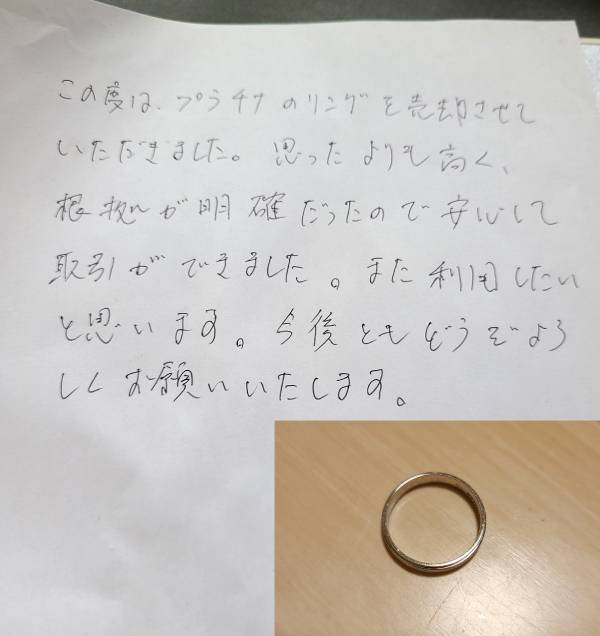 この度は、プラチナのリングを売却させて
いただきました。思ったよりも高く、
根拠が明確だったので安心して
取引ができました。また利用したい
と思います。今後ともどうぞよろ
しくお願いいたします。